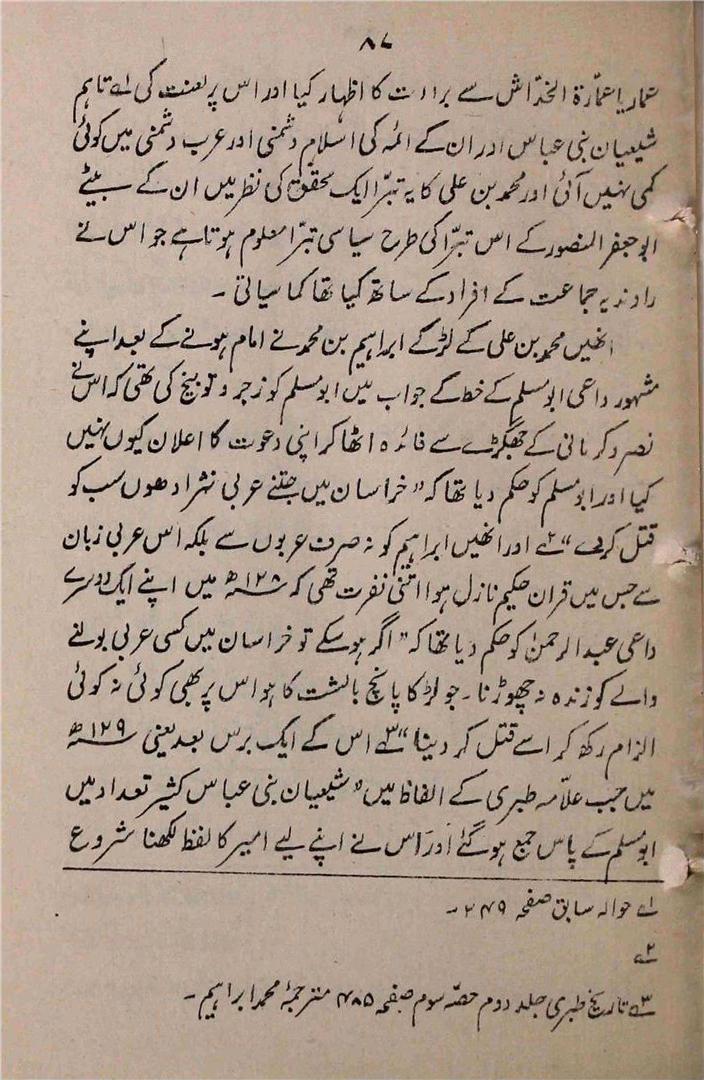 ۸۷
عمار یا عمّارۃ الخدّاش سے براءت کا اظہار کیا اور اس پر لعنت کی ؎۱ تاہم
شیعیان بنی عباس اور ان کے ائمہ کی اسلام دشمنی اور عرب دشمنی میں کوئی
کمی نہیں آئی اور محمد بن علی کا یہ تبرّا ایک محقق کی نظر میں ان کے بیٹے
ابو جعفر المنصور کے اس تبرّا کی طرح سیاسی تبرّا معلوم ہوتا ہے جو اس نے
راوندیہ جماعت کے افراد کے ساتھ کیا تھا کما سیاتی ۔
انھیں محمد بن علی کے لڑکے ابراہیم بن محمد نے امام ہونے کے بعد اپنے
مشہور داعی ابو مسلم کے خط کے جواب میں ابو مسلم کو زجر و توبیخ کی تھی کہ اس نے
نصر و کرمانی کے جھگڑے سے فائدہ اٹھا کر اپنی دعوت کا اعلان کیوں نہیں
کیا اور ابو مسلم کو حکم دیا تھا کہ ” خراسان میں جتنے عربی نثراد ھوں سب کو
قتل کر دے “ ؎۲ اور انھیں ابراہیم کو نہ صرف عربوں سے بلکہ اس عربی زبان
سے جس میں قران حکیم نازل ہوا اتنی نفرت تھی کہ ۱۲۸ھ میں اپنے ایک دوسرے
داعی عبد الرحمنٰ کو حکم دیا تھا کہ ” اگر ہو سکے تو خراسان میں کسی عربی بولنے
والے کو زندہ نہ چھوڑنا ۔ جو لڑکا پانچ بالشت کا ہو اس پر بھی کوئی نہ کوئی
الزام رکھ کر اسے قتل کر دینا “ ؎۳ اس کے ایک برس بعد یعنی ۱۲۹ھ
میں جب علّامہ طبری کے الفاظ میں ” شیعیان بنی عباس کثیر تعداد میں
ابو مسلم کے پاس جمع ہو گئے اور اس نے اپنے لیے امیر کا لفظ لکھنا شروع
؎۱ حوالہ سابق صفحہ ۲۴۹ ۔
؎۲
؎۳ تاریخ طبری جلد دوم حصّہ سوم صفحہ ۴۸۵ مترجمۂ محمد ابراہیم ۔